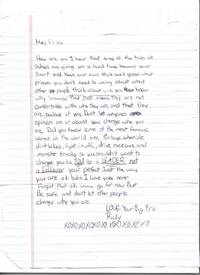 How are you I hear that some of the kids at
School are giving you a hard time because your
Smart and have your own style well guess what
prison you don't need to worry about what
other people think about you you know
why because that just means they are not
comfortable with who they are and that they
are jealous of you. Don't let anyones
opinion on or about you change who you
are. Did you know some of the most famous
women in the world are
dirt bikes, fight in ufc, drive race cars and
monster trucks so you shouldn't want to
change you to. YOU be a LEADER not
a follower your perfect Just the way
you are ok baby I love you never
forget that ok imma go for now But
Be safe and don't let other people
change who you are.
LOVE Your Big Bro
XOXOXOXOXOXOXOXOXOXO